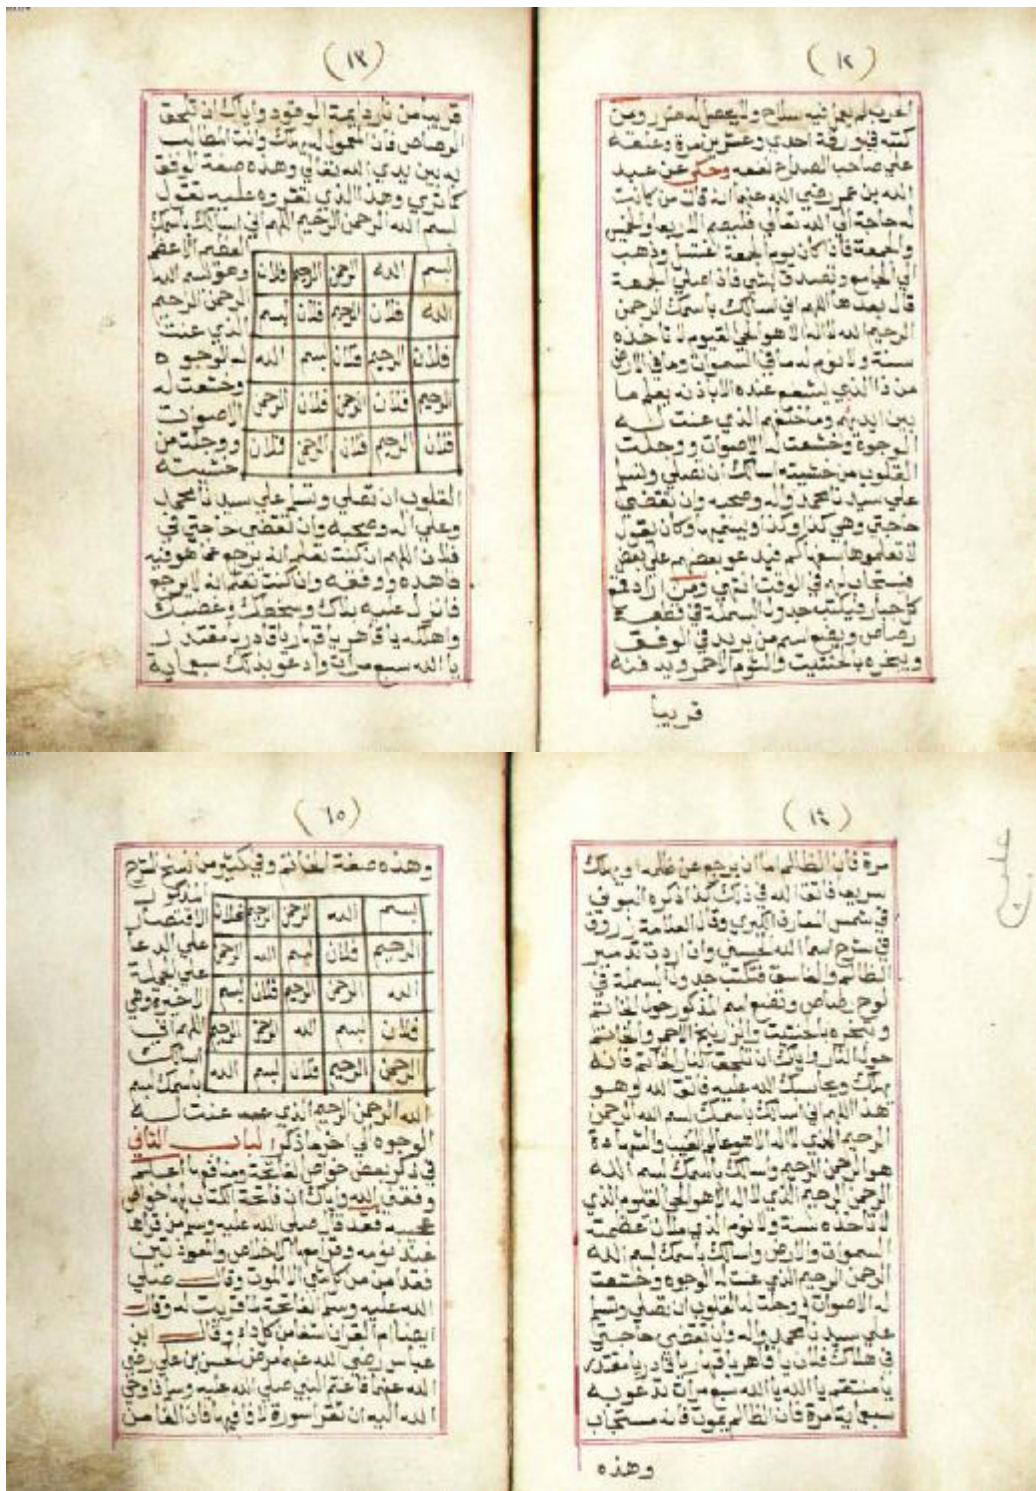 (١٢)
الحرب لم يعمل فيه سلاح ولا يحصل له ضرر ومن
كتبه في ورقة احدي وعشرين مرة وعلقه
علي صاحب الصداع نفعه وحكي عن عبد
الله بن عمر رضي الله عنهما انه قال من كانت
له حاجة الي الله تعالي فليصم الاربعا والخميس
والجمعة فاذا كان يوم الجمعة اغتسل وذهب
الي الجامع وتصدق بشي فاذا صلي الجمعة
قال بعدها اللهم اني اسالك باسمك الرحمن
الرحيم الله لا اله الا هو الحي القيوم لا تاخذه
سنة ولا نوم له ما في السموات وما في الارض
من ذا الذي يشفع عنده الا باذنه يعلم ما
بين ايديهم وما خلفهم الذي عنت له
الوجوه وخشعت له الاصوات ووجلت
القلوب من خشيته اسالك ان تصلي وتسلم
علي سيدنا محمد واله وصحبه وان تقضي
حاجتي وهي كذا وكذا ويسميها وكان يقول
لا تعلموها سفهاكم فيدعو بعضهم علي بعض
فيستجاب لهم في الوقت انتهي ومن اراد
كل جبار فيكتب جدول البسملة في قطعة
رصاص ويضع اسم من يريد في الوفق
ويبخره بحنتيت والثوم الاحمر ويدفنه
قريبا
(١٣)
قريبا من نار دايمة الوقود واياك ان تلحق
الرصاص فان المعمول له يهلك وانت المطالب
به بين يدي الله تعالي وهذه صفة الوفق
كما تري وهذا الذي تقروه عليه تقول
بسم الله الرحمن الرحيم اللهم اني اسالك باسمك
العظيم الاعظم
وهو بسم الله
الرحمن الرحيم
الذي عنت
له الوجوه
وخشعت له
الاصوات
ووجلت من
خشيته
بسم الله الرحمن الرحيم فلان
الله فلان الرحيم فلان بسم
فلان الرحيم فلان بسم الله
الرحيم فلان الرحمن فلان الرحمن
فلان الرحيم فلان الرحمن فلان
القلوب ان تصلي وتسلم علي سيدنا محمد
وعلي اله وصحبه وان تقضي حاجتي في
فلان اللهم ان كنت تعلم انه يرجع عما هو فيه
فاهده ووفقه وان كنت تعلم انه لا يرجع
فانزل عليه بلاك وسخطك وغضبك
واهلكه يا قاهر يا قهار يا قادر يا مقتدر
يا الله سبع مرات وادعو بذلك سبعماية
(١٤)
مرة فان الظالم اما ان يرجع عن ظلمه او يهلك
سريعا فاتق الله في ذلك كذا ذكره البوني
في شمس المعارف الكبري وقال العلامة زروق
في شرح اسما الله الحسني وان اردت تدمير
الظالم والفاسق فتكتب جدول البسملة في
لوح رصاص وتضع اسم المذكور حول الخاتم
وتبخره بحنتيت والزرنيخ الاحمر والخاتم
حول النار واياك ان تلحق النار الخاتم فانه
يهلك ويحاسبك الله عليه فاتق الله وهو
هذا اللهم اني اسالك باسمك بسم الله الرحمن
الرحيم الذي لا اله الا هو عالم الغيب والشهادة
هو الرحمن الرحيم واسالك باسمك بسم الله
الرحمن الرحيم الذي لا اله الا هو الحي القيوم الذي
لا تاخذه سنة ولا نوم الذي ملات عظمته
السموات والارض واسالك باسمك بسم الله
الرحمن الرحيم الذي عنت له الوجوه وخشعت
له الاصوات ووجلت له القلوب ان تصلي وتسلم
علي سيدنا محمد واله وان تقضي حاجتي
في هلاك فلان يا قاهر يا قهار يا قادر يا مقتدر
يا منتقم يا الله يا الله سبع مرات تدعو به
سبعماية مرة فان الظالم يموت فانه مستجاب
وهذه
(١٥)
وهذه صفة الخاتم وفي كثير من نسخ الشرح
المذكور
الاقتصار
علي الدعا
علي الجملة
الاخيرة وهي
اللهم اني
اسالك
باسمك بسم
بسم الله الرحمن الرحيم فلان
الرحيم فلان بسم الله الرحمن
الله الرحمن الرحيم فلان بسم
فلان بسم الله الرحمن الرحيم
الرحمن الرحيم فلان بسم الله
الله الرحمن الرحيم الذي عنت له
الوجوه الي اخر ما ذكر الباب الثاني
في ذكر بعض خواص الفاتحة ومنافعها اعلم
وفقني الله واياك ان فاتحة الكتاب لها خواص
عجيبه فقد قال صلي الله عليه وسلم من قراها
عند نومه وقرا معها الاخلاص والمعوذتين
فقد امن من كل شي الا الموت وقال صلي
الله عليه وسلم الفاتحة لما قريت له وقال
ايضا ام القران شفا من كل داء وقال ابن
عباس رضي الله عنهما مرض الحسن بن علي رضي
الله عنهما فاغتم النبي صلي الله عليه وسلم فاوحي
الله اليه ان تقرا سورة لا فا فيها فان الفا من